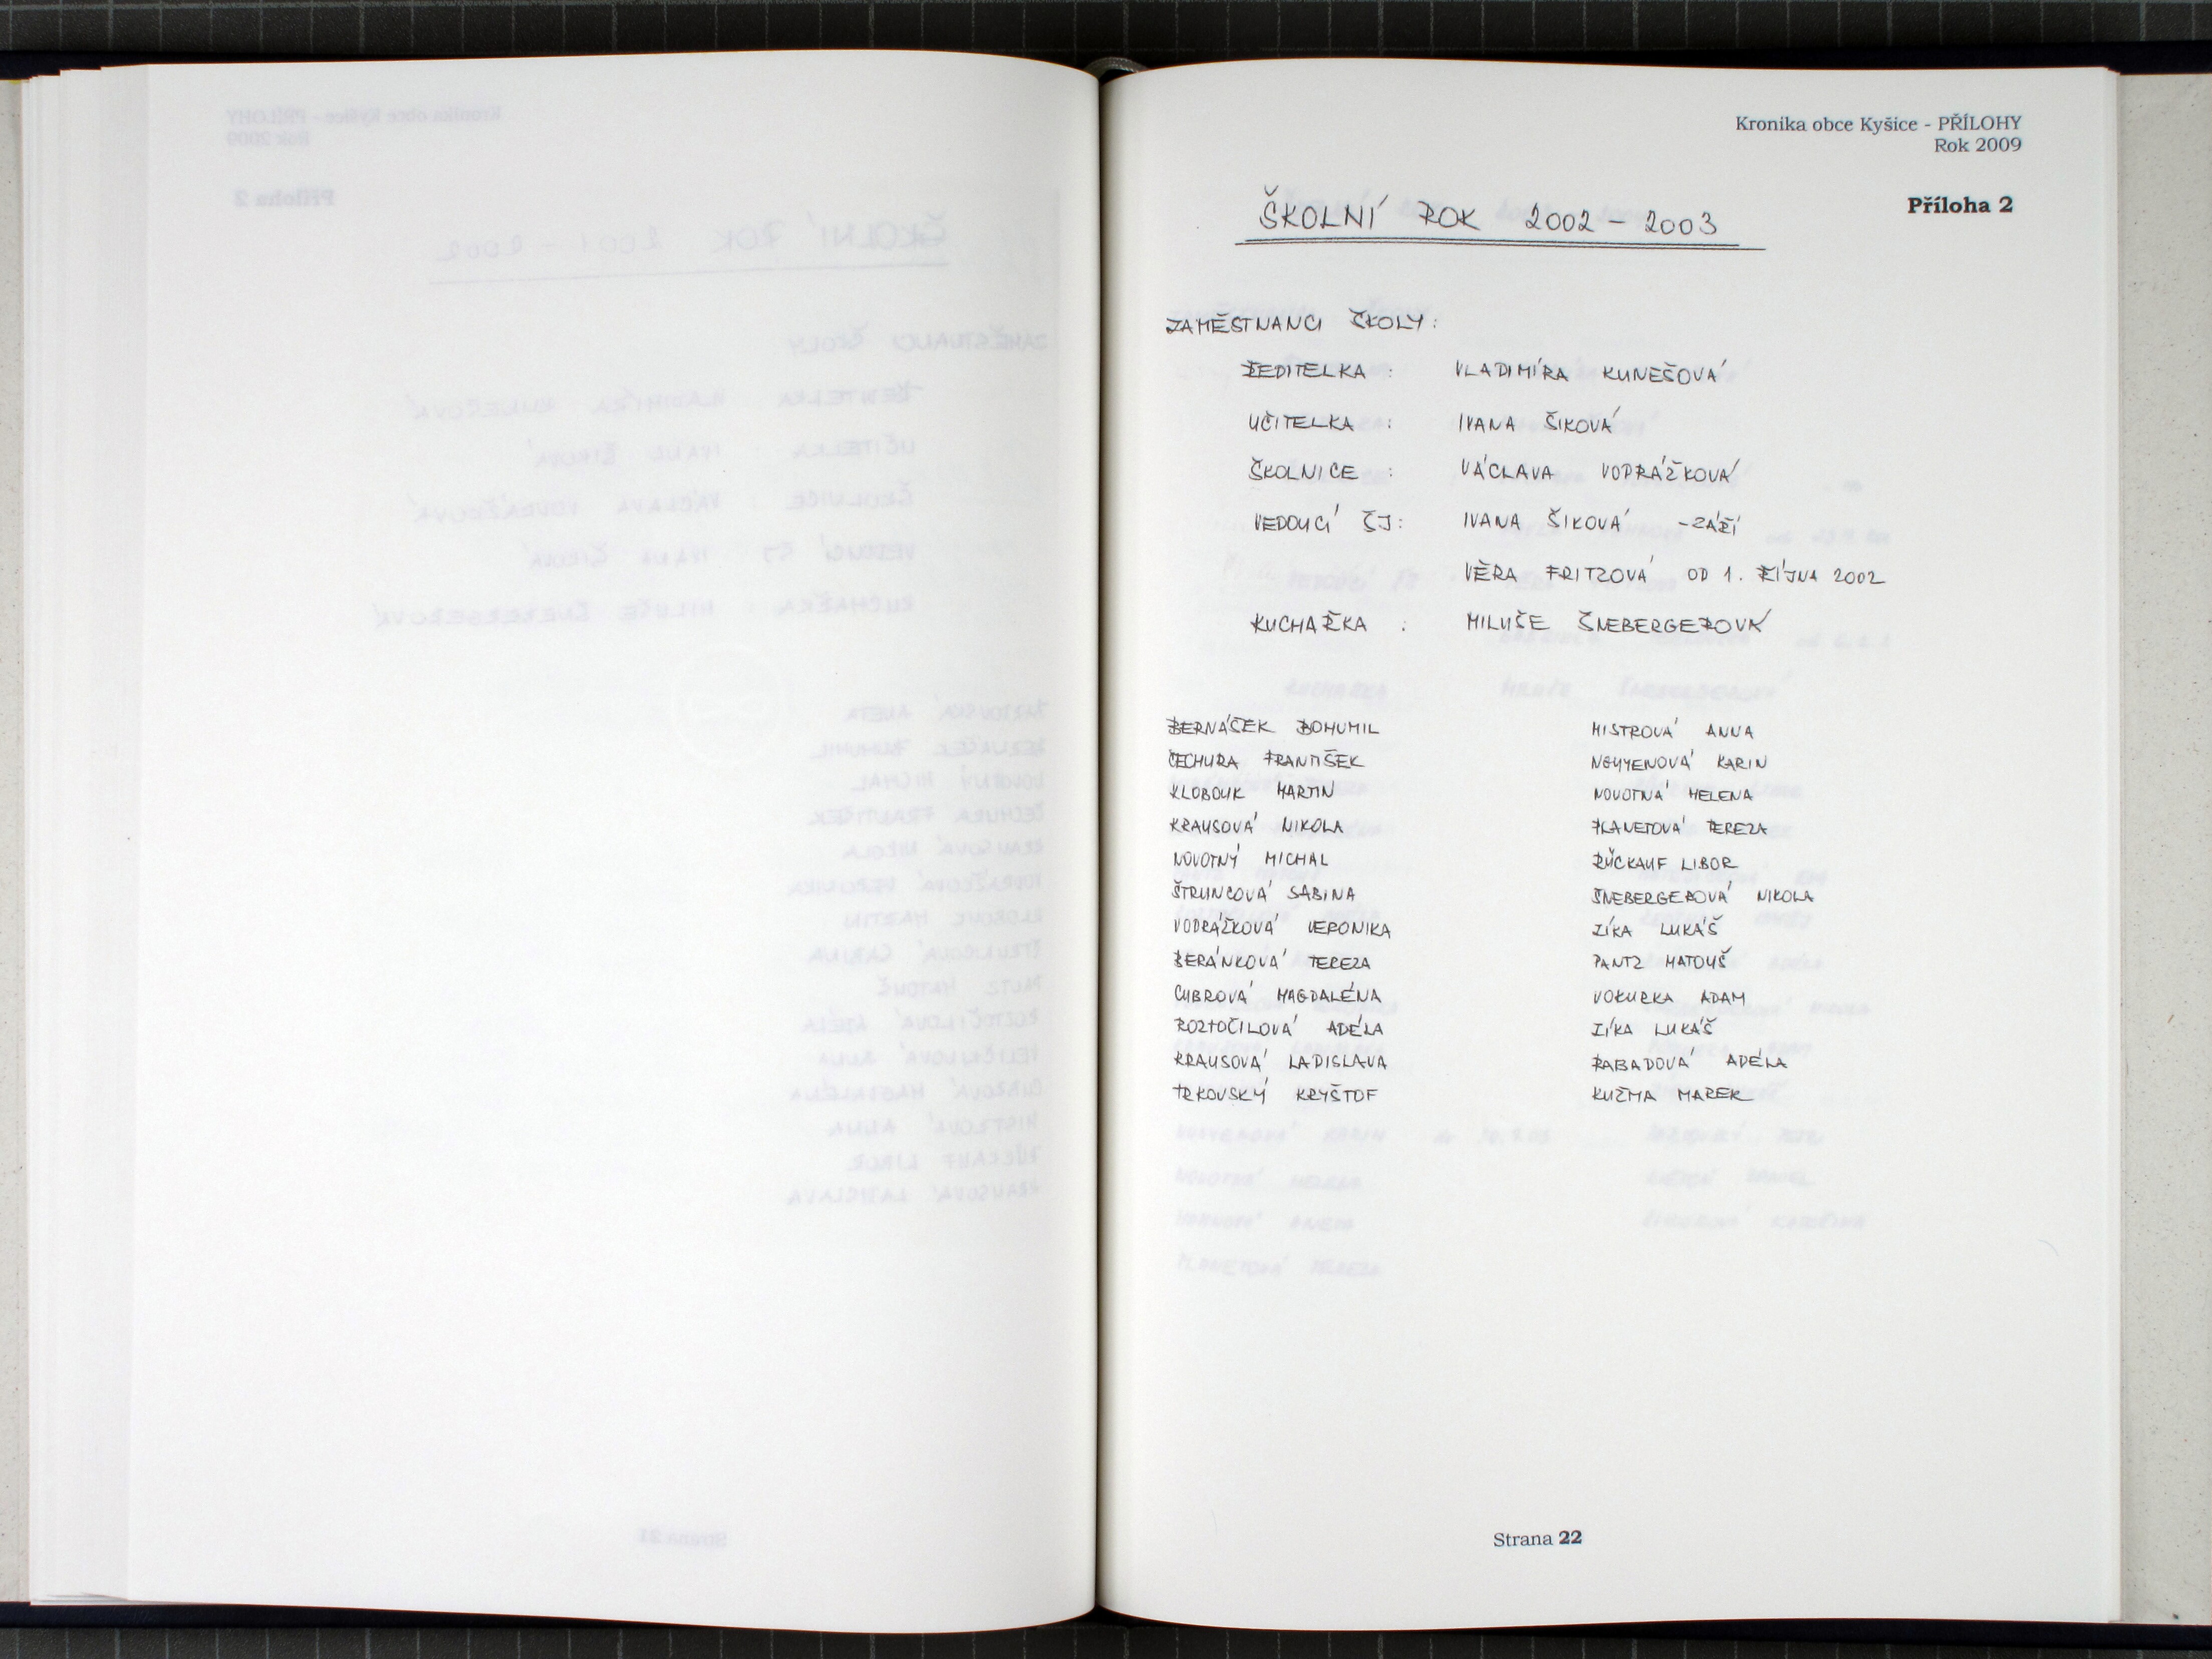 Kronika obce Kyšice - PŘÍLOHY
Rok 2009
Příloha 2
ŠKOLNÍ ROK 2002 - 2003
ZAMĚSTNANCI ŠKOLY:
ŘEDITELKA : VLADIMÍRA KUNEŠOVÁ
UČITELKA : IVANA ŠIKOVÁ
ŠKOLNICE : VÁCLAVA VODRÁŽKOVÁ
VEDOUCÍ ŠJ: IVANA ŠIKOVÁ -ZÁŘÍ
VĚRA FRITZOVÁ OD 1. ŘÍJNA 2002
KUCHAŘKA : MILUŠE ŠNEBERGEROVÁ
BERNÁŠEK BOHUMIL
ČECHURA FRANTIŠEK
KLOBOUK MARTIN
KRAUSOVÁ NIKOLA
NOVOTNÝ MICHAL
ŠTRUNCOVÁ SABINA
VODRÁŽKOVÁ VERONIKA
BERÁNKOVÁ TEREZA
CUBROVÁ MAGDALÉNA
ROZTOČILOVÁ ADÉLA
KRAUSOVÁ LADISLAVA
TRKOVSKÝ KRYŠTOF
MISTROVÁ ANNA
NGUYENOVÁ KARIN
NOVOTNÁ HELENA
PLANETOVÁ TEREZA
RŮCKAUF LIBOR
ŠNEBERGEROVÁ NIKOLA
ZÍKA LUKÁŠ
PANTZ MATOUŠ
VOKURKA ADAM
ZÍKA LUKÁŠ
RABADOVÁ ADÉLA
KUŽMA MAREK
Strana 22